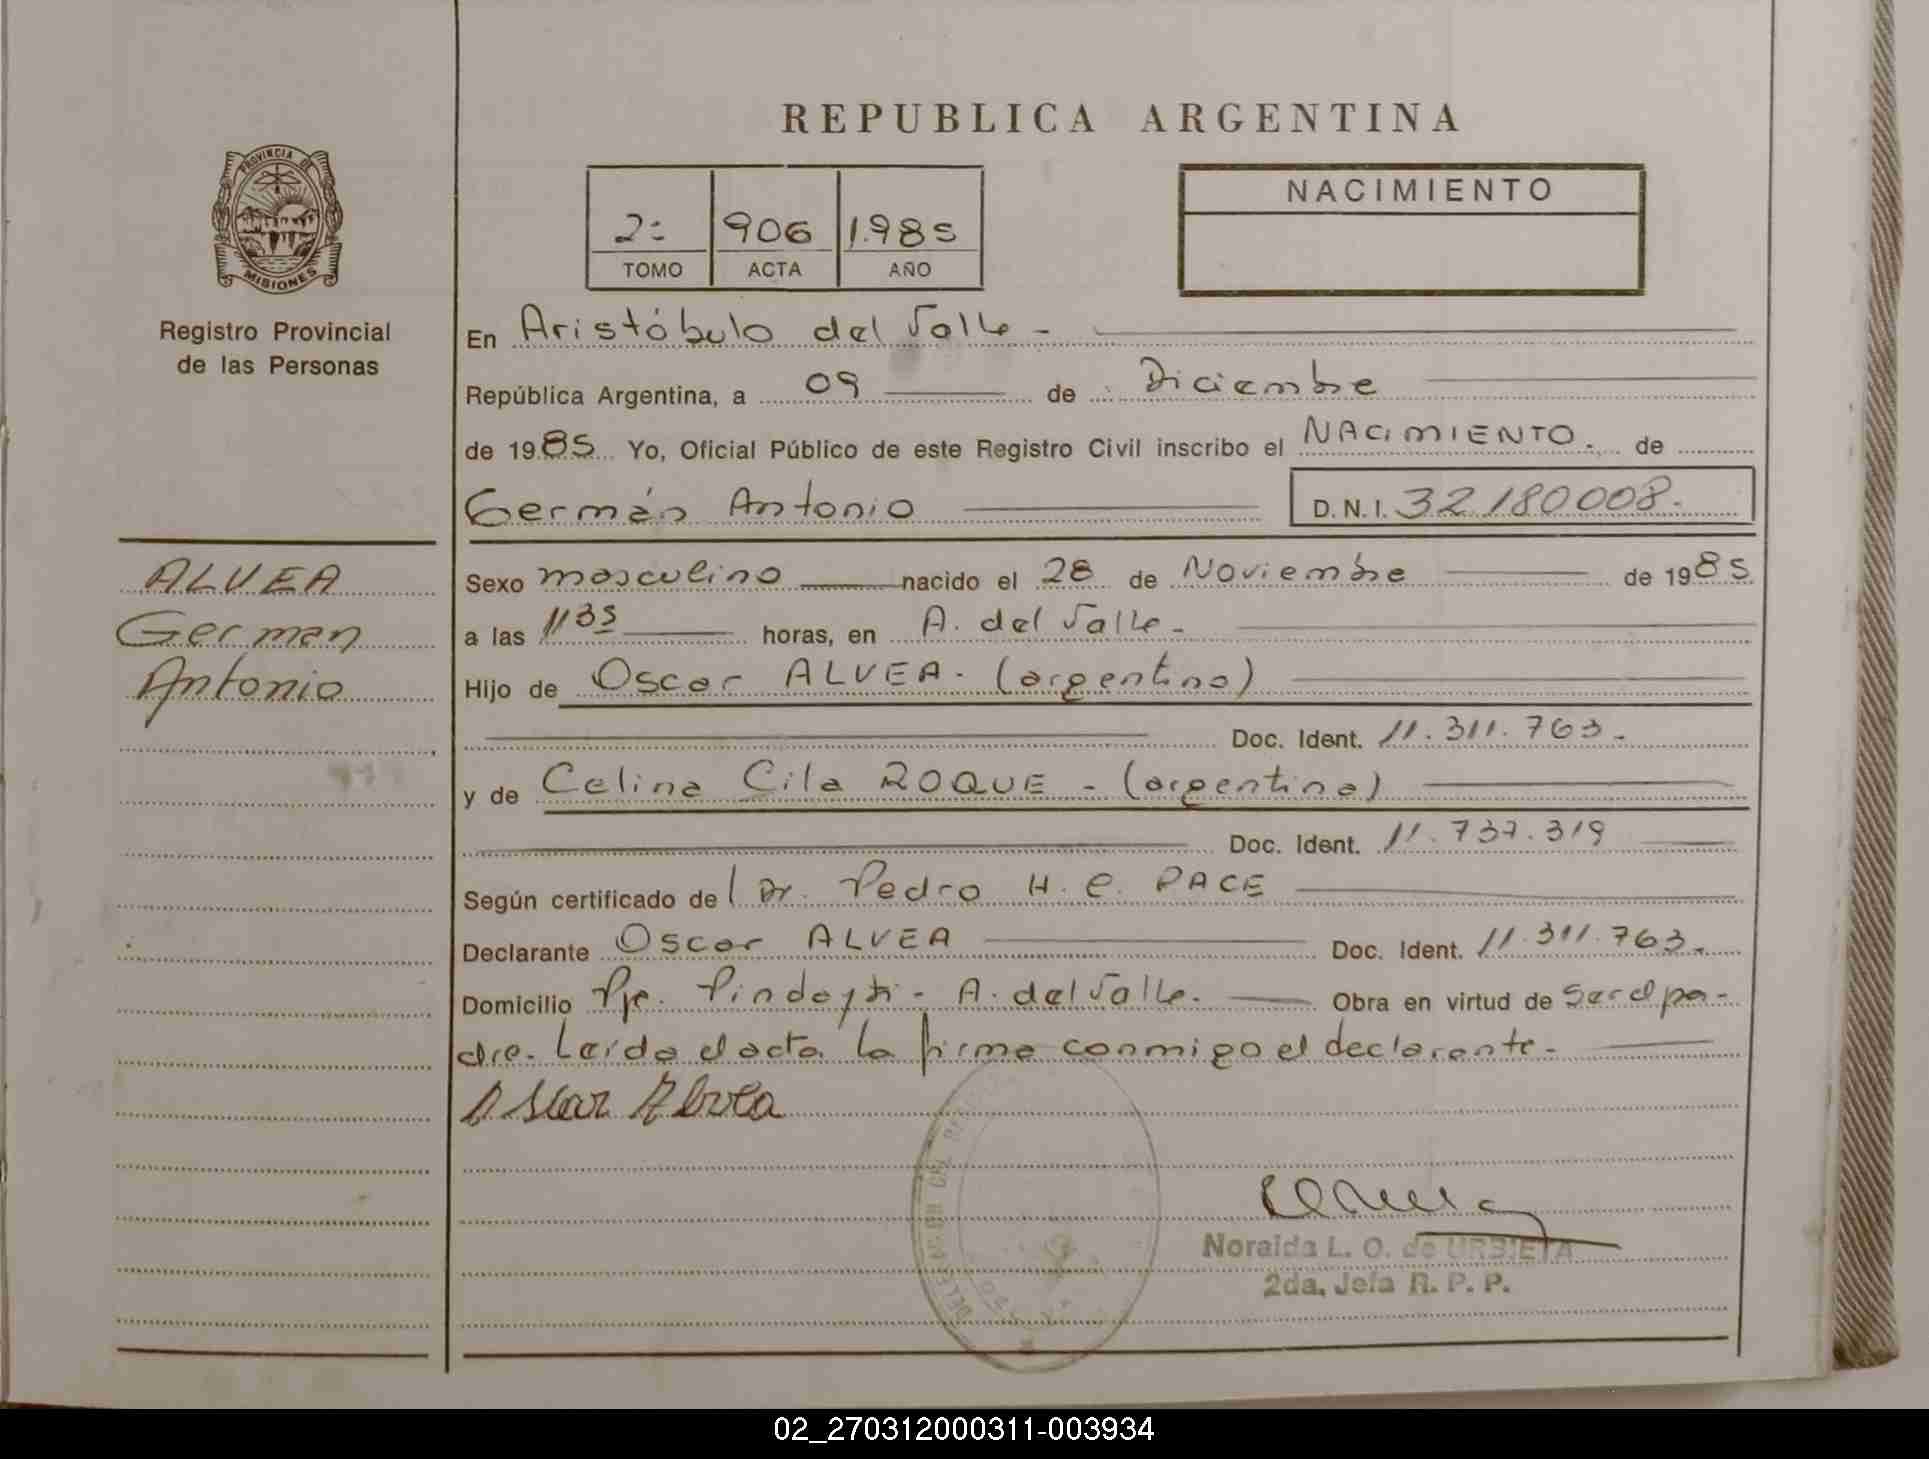 REPUBLICA ARGENTINA
PROVINCIA DE
MISIONES
Registro Provincial
de las Personas
2º 906 1.985
TOMO ACTA AÑO
NACIMIENTO
En Aristóbulo del Valle -
República Argentina, a 09 de Diciembre
de 1985 Yo, Oficial Público de este Registro Civil inscribo el NACIMIENTO. de
Germán Antonio D.N.I. 32.180008.-
ALVEA
German
Antonio
Sexo masculino nacido el 28 de Noviembre de 1985
a las 1135 horas, en A. del Valle.-
Hijo de Oscar ALVEA. (argentino)
Doc. Ident. 11.311.763.-
y de Celina Cila ROQUE - (argentina)
Doc. Ident. 11.737.319
Según certificado del Dr. Pedro H. C. PACE
Declarante Oscar ALVEA Doc. Ident. 11.311.763.-
Domicilio Pje. - A. del Valle. Obra en virtud de ser el pa-
dre. Leída el acta la firma conmigo el declarante.-
Oscar Alvea
Noraida L. O. de URBIETA
2da. Jefa R. P. P.
02_270312000311-003934